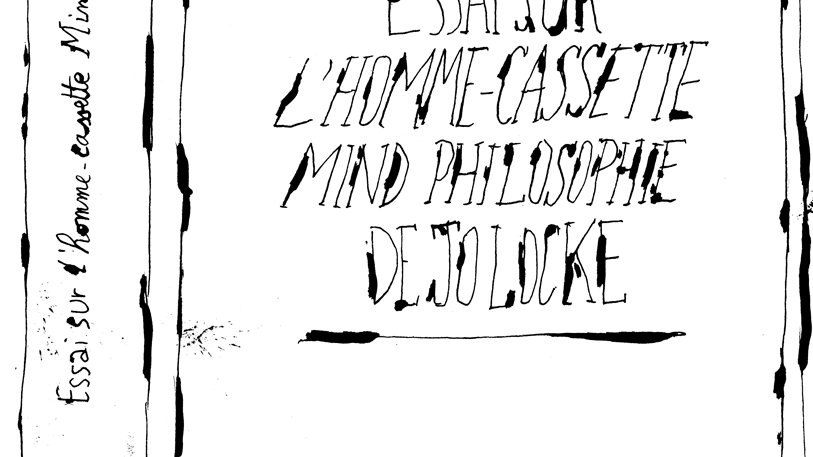 ESSAI SUR
L'HOMME-CASSETTE
MIND PHILOSOPHIE
DE JO LOCKE
Essai sur l'homme-cassette Min